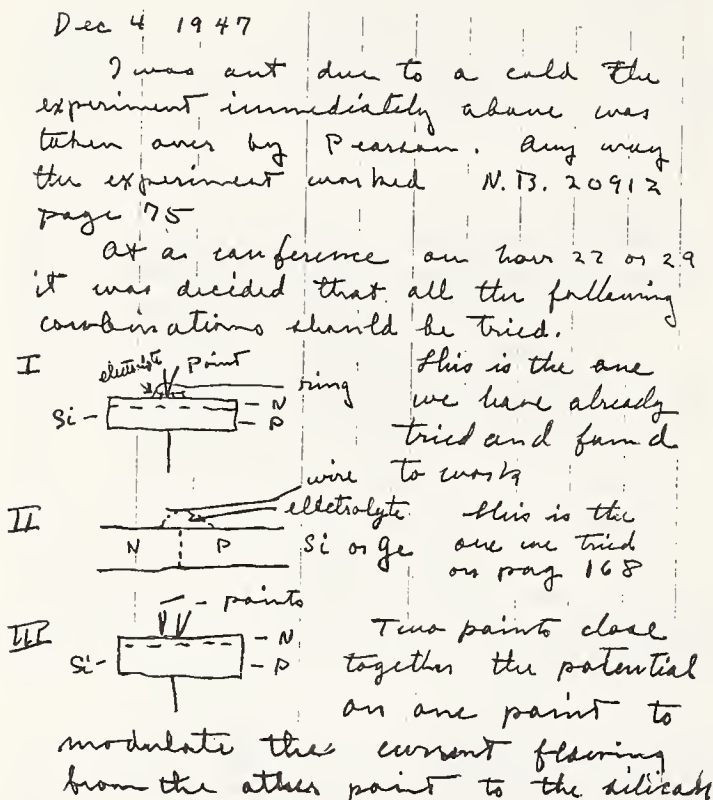 Dec 4 1947
I was out due to a cold the
experiment immediately above was
taken over by Pearson. Any way
the experiment worked N.B. 20912
page 75
At a conference on Nov 22 or 29
it was decided that all the following
combinations should be tried.
I
electrolyte Point
ring
Si
N
P
This is the one
we have already
tried and found
to work
II
wire
electrolyte
N P
Si or Ge
This is the
one we tried
on pag 168
III
points
Si
N
P
Two points close
together the potential
on one point to
modulate the current flowing
from the other point to the silicon